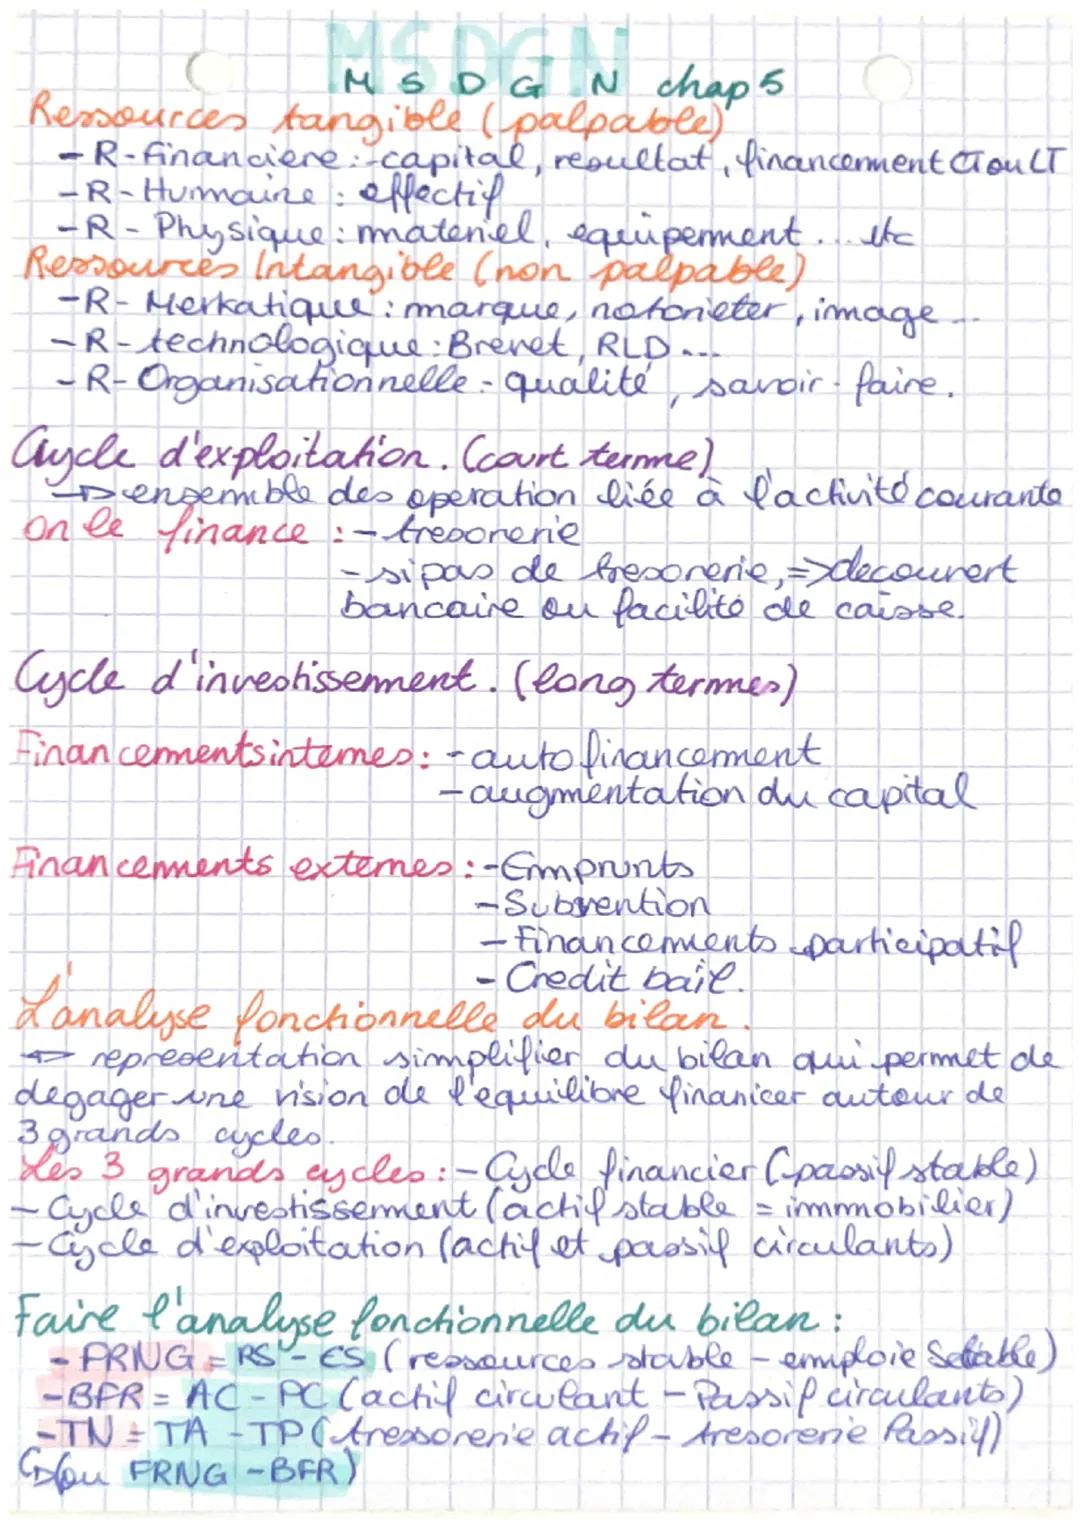 MSDGN
M S D G N chap 5
Ressources tangible (palpable)
- R-financière :-capital, resultat, financement CT ou LT
- R- Humaine : effectif
- R - Physique : materiel, equipement ... etc
Ressources Intangible (non palpable)
- R- Merkatique : marque, notorieter, image ...
- R- technologique : Brevet, RLD ...
- R- Organisationnelle - qualité, savoir-faire.
Cycle d'exploitation. (court terme)
→ ensemble des operation liée à l'activité courante
on le finance : - tresorerie
- si pas de tresorerie, => decouvert
bancaire ou facilité de caisse.
Cycle d'investissement. (long termes)
Financements internes : - auto financement
- augmentation du capital
Financements externes : - Emprunts
- Subvention
- Financements participatif
- Credit bail.
L'analyse fonctionnelle du bilan.
→ representation simplifier du bilan qui permet de
degager une vision de l'equilibre finanicer autour de
3 grands cycles.
Les 3 grands cycles : - Cycle financier (passif stable)
- Cycle d'investissement (actif stable = immmobilier)
- Cycle d'exploitation (actif et passif circulants)
Faire l'analyse fonctionnelle du bilan :
- FRNG = RS - ES (ressources stable - emploie Stable)
- BFR = AC - PC (actif circulant - Passif circulants)
- TN = TA - TP (tressorerie actif - tresorerie Passif)
↳ (ou FRNG - BFR)